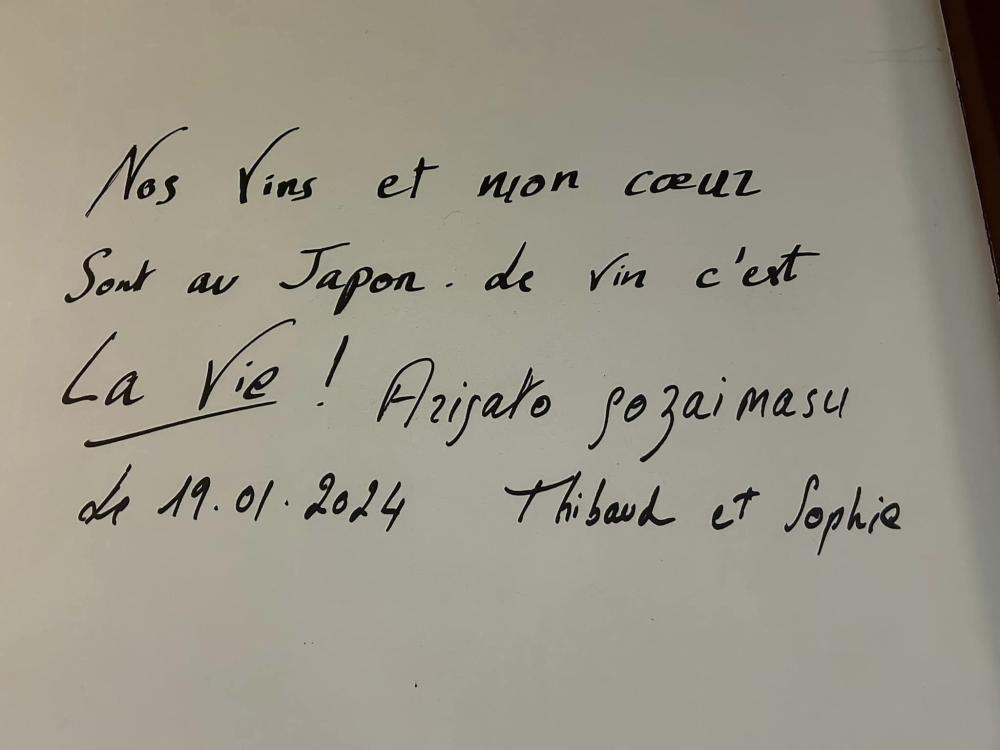 Nos Vins et mon cœur
Sont au Japon. Le vin c'est
La Vie ! Arigato gozaimasu
Le 19.01.2024 Thibaud et Sophie